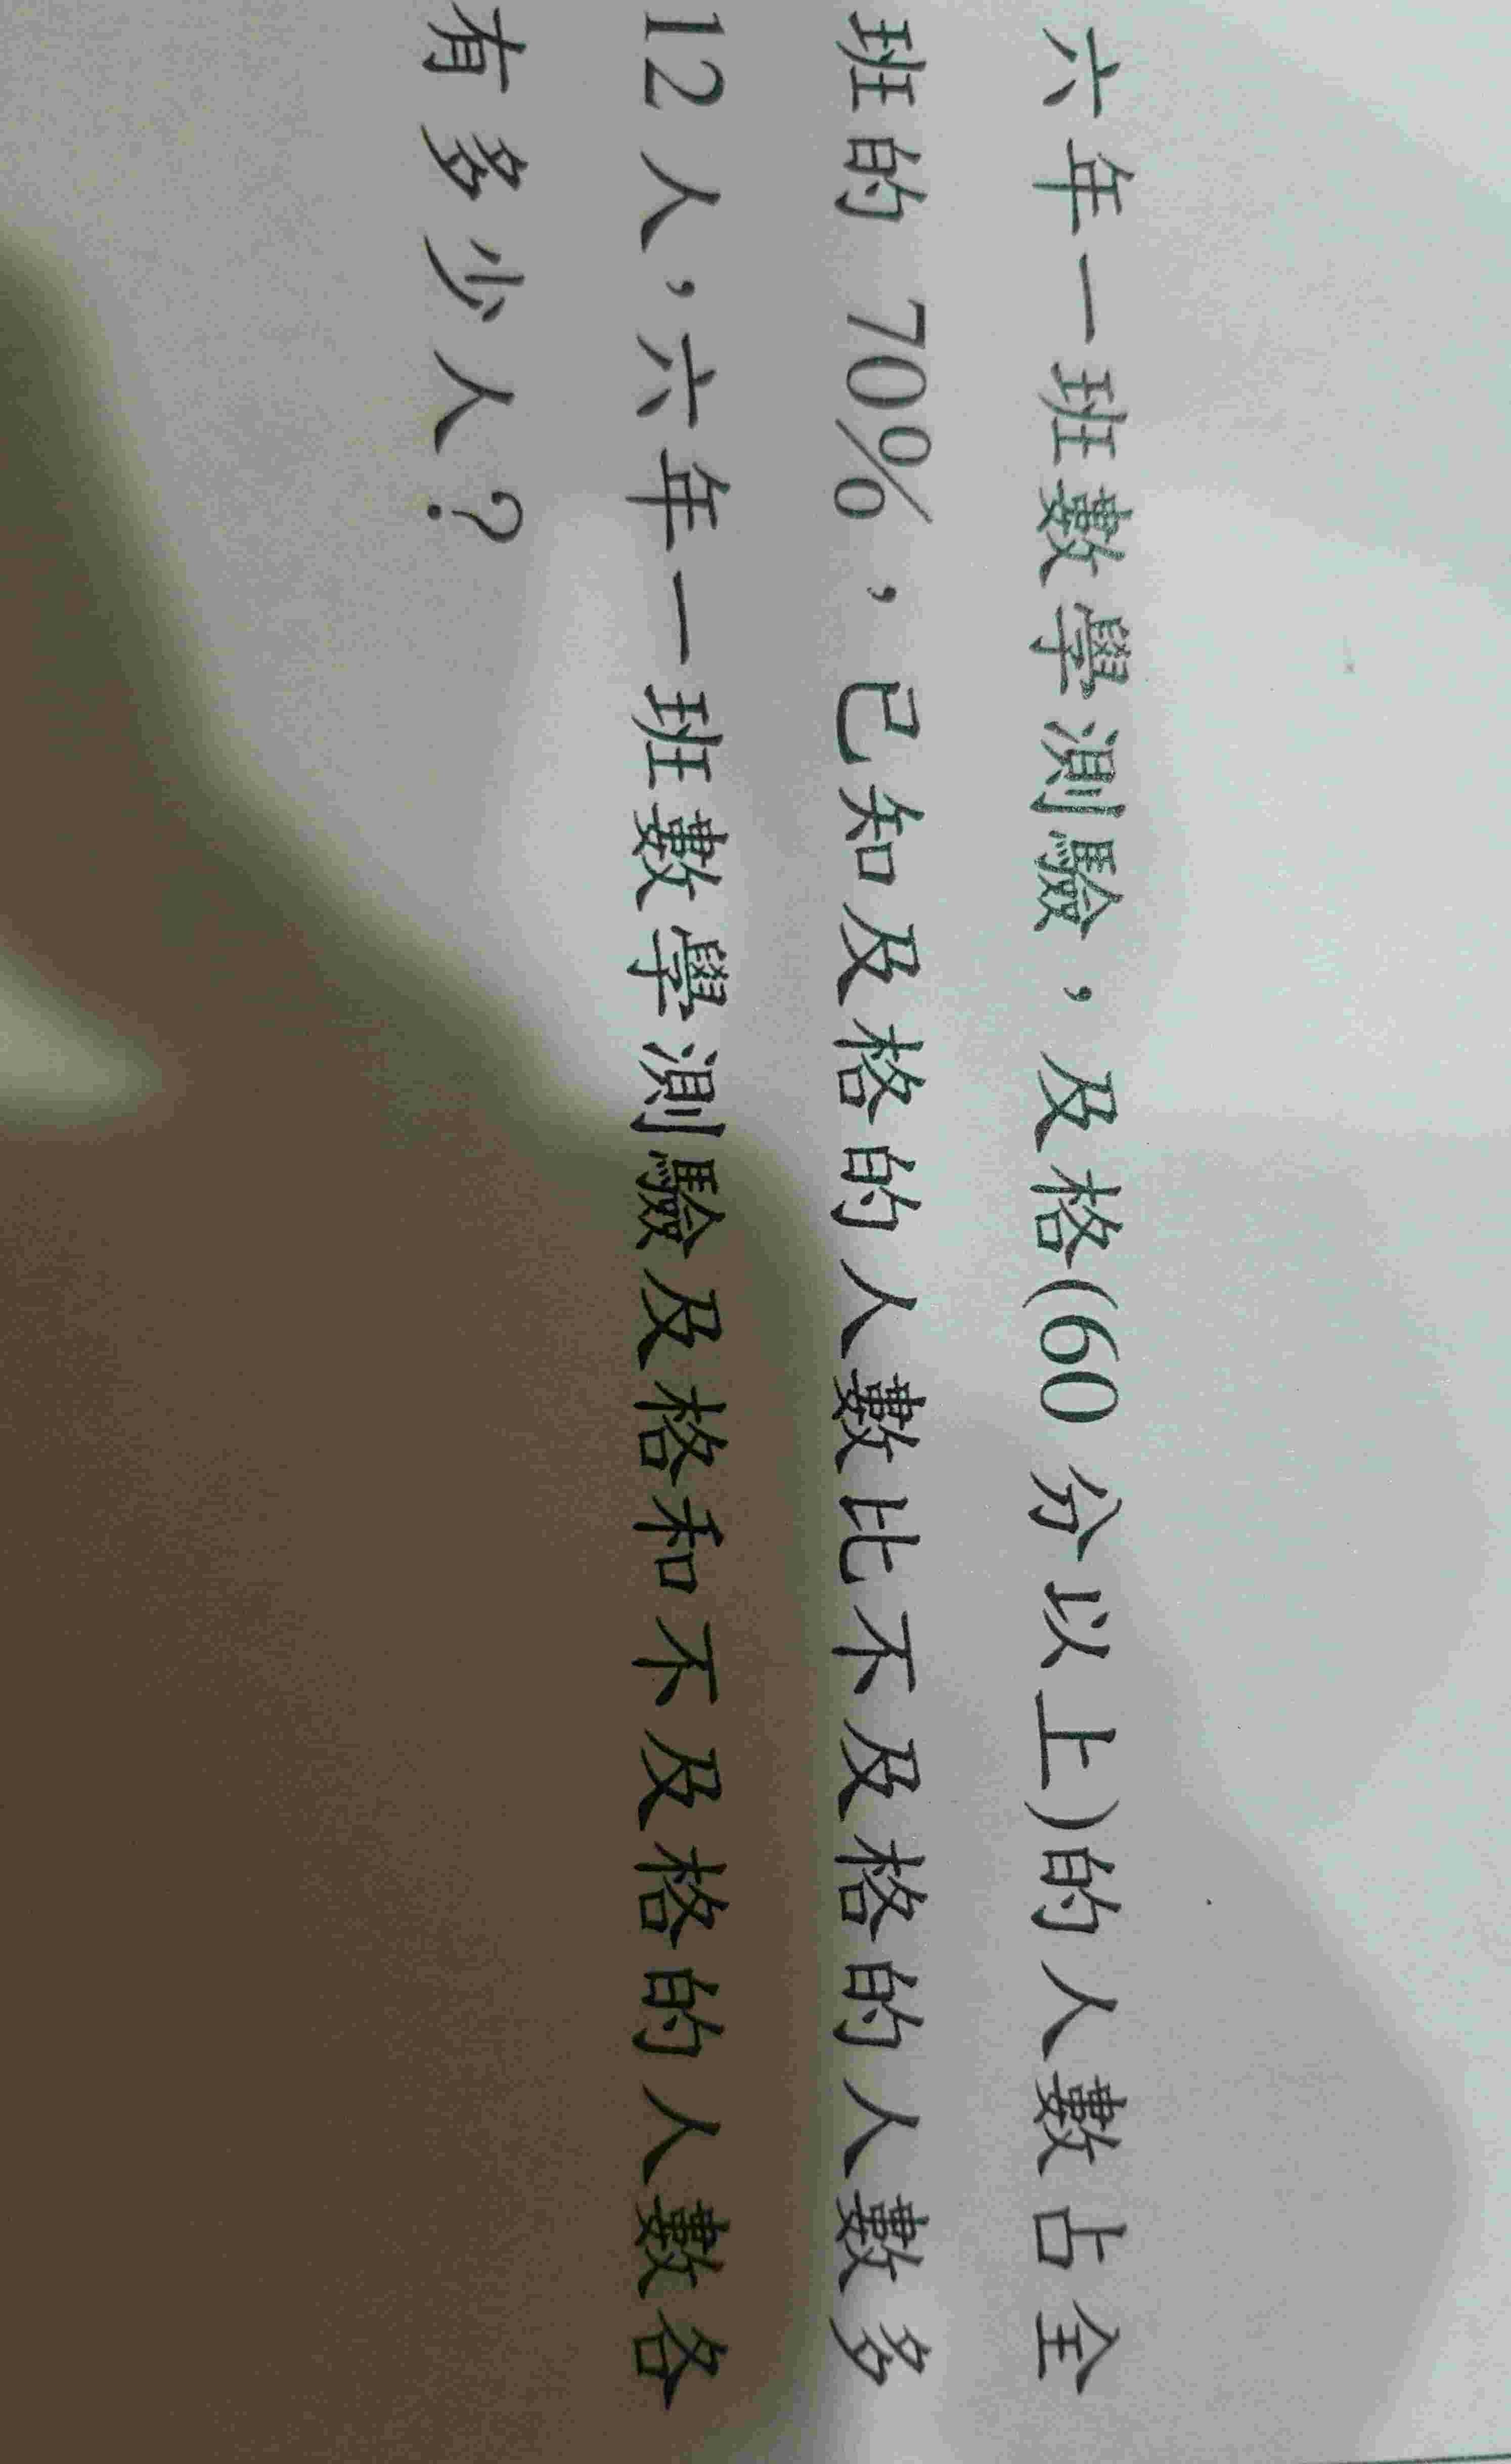 六年一班數學測驗，及格(60 分以上)的人數占全
班的 70%，已知及格的人數比不及格的人數多
12 人，六年一班數學測驗及格和不及格的人數各
有多少人？